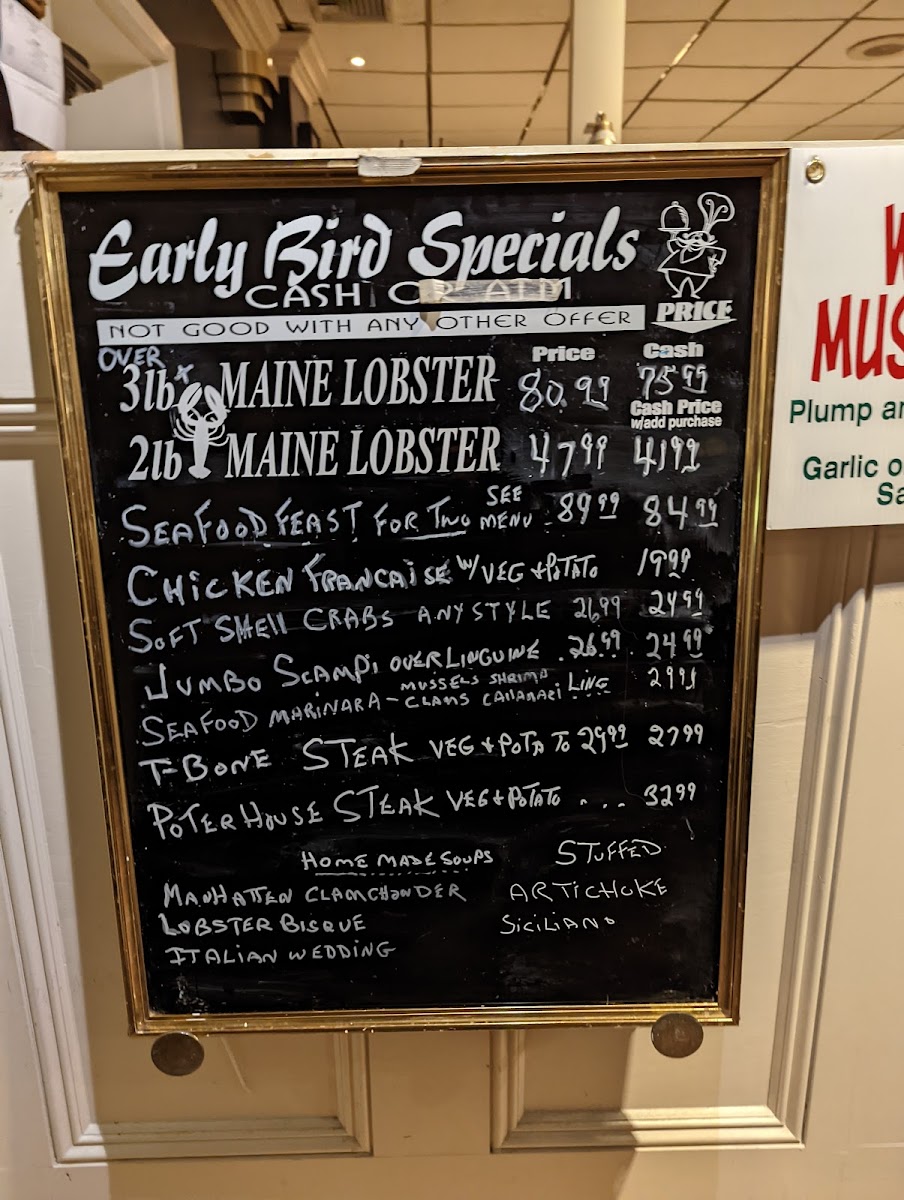 Early Bird Specials
CASH OR ATM
PRICE
NOT GOOD WITH ANY OTHER OFFER
Price Cash
OVER
3lb MAINE LOBSTER 80.99 75.99
Cash Price
w/add purchase
2lb MAINE LOBSTER 47.99 41.99
SEAFOOD FEAST FOR TWO SEE MENU 89.99 84.99
CHICKEN FRANCAISE W/ VEG + POTATO 19.99
SOFT SHELL CRABS ANY STYLE 26.99 24.99
JUMBO SCAMPI OVER LINGUINE . 26.99 . 24.99
SEAFOOD MARINARA - MUSSELS SHRIMP CLAMS CALLAMARI LING 29.99
T-BONE STEAK VEG + POTATO 29.99 27.99
POTERHOUSE STEAK VEG + POTATO .... 32.99
HOME MADE SOUPS
MANHATTEN CLAMCHOWDER
LOBSTER BISQUE
ITALIAN WEDDING
STUFFED
ARTICHOKE
SICILIANO
W
MUS
Plump an
Garlic o
Sa